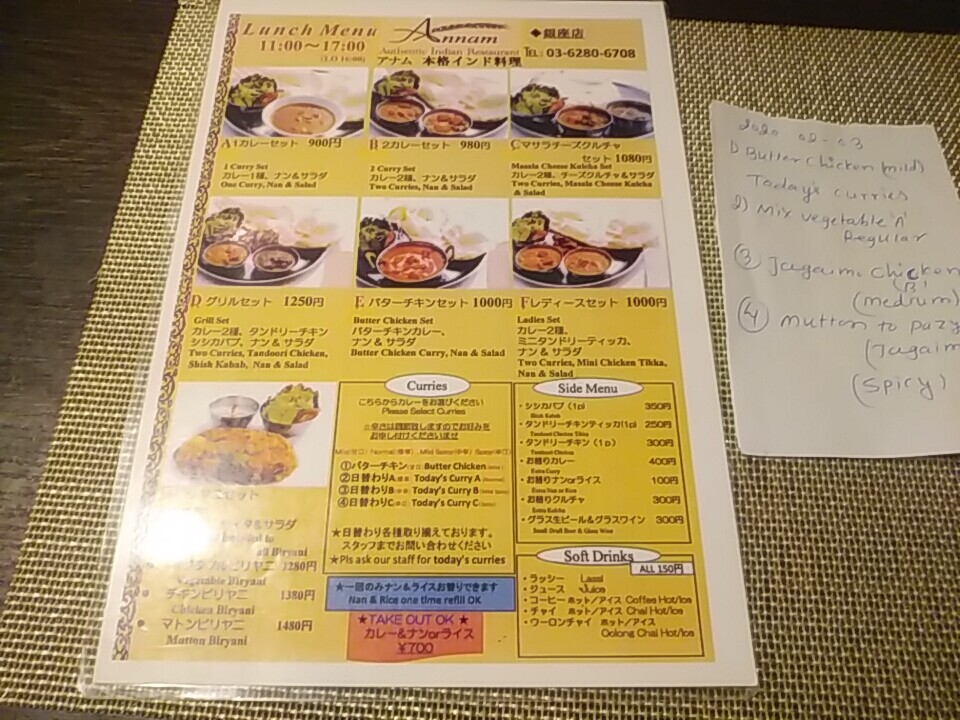 Lunch Menu
11:00～17:00
(LO 16:00)
Annam
Authentic Indian Restaurant
アナム 本格インド料理
◆銀座店
TEL: 03-6280-6708
A 1カレーセット 900円
1 Curry Set
カレー1種、ナン&サラダ
One Curry, Nan & Salad
B 2カレーセット 980円
2 Curry Set
カレー2種、ナン&サラダ
Two Curries, Nan & Salad
C マサラチーズクルチャ
セット 1080円
Masala Cheese Kulcha Set
カレー2種、チーズクルチャ&サラダ
Two Curries, Masala Cheese Kulcha
& Salad
D グリルセット 1250円
Grill Set
カレー2種、タンドリーチキン
シシカバブ、ナン & サラダ
Two Curries, Tandoori Chicken,
Shish Kabab, Nan & Salad
E バターチキンセット 1000円
Butter Chicken Set
バターチキンカレー、
ナン & サラダ
Butter Chicken Curry, Nan & Salad
F レディースセット 1000円
Ladies Set
カレー2種、
ミニタンドリーティッカ、
ナン & サラダ
Two Curries, Mini Chicken Tikka,
Nan & Salad
セット
&サラダ
Biryani
ビリヤニ 1280円
Vegetable Biryani
チキンビリヤニ 1380円
Chicken Biryani
マトンビリヤニ 1480円
Mutton Biryani
Curries
こちらからカレーをお選びください
Please Select Curries
※辛さは調節致しますのでお好みを
お申し付けくださいませ
①バターチキン Butter Chicken
②日替わりA Today's Curry A
③日替わりB Today's Curry B
④日替わりC Today's Curry C
★日替わり各種取り揃えております。
スタッフまでお問い合わせください
★Pls ask our staff for today's curries
★一回のみナン&ライスお替りできます
Nan & Rice one time refill OK
★TAKE OUT OK ★
カレー&ナンorライス
¥700
Side Menu
・シシカバブ (1p) 350円
Shish Kabab
・タンドリーチキンティッカ(1p) 250円
Tandoori Chicken Tikka
・タンドリーチキン (1p) 300円
Tandoori Chicken
・お替りカレー 400円
Extra Curry
・お替りナンorライス 100円
Extra Nan or Rice
・お替りクルチャ 300円
Extra Kulcha
・グラス生ビール&グラスワイン 300円
Small Draft Beer & Glass Wine
Soft Drinks
ALL 150円
・ラッシー Lassi
・ジュース Juice
・コーヒー ホット/アイス Coffee Hot/Ice
・チャイ ホット/アイス Chai Hot/Ice
・ウーロンチャイ ホット/アイス
Oolong Chai Hot/Ice
2020 02-03
1) Butter chicken (mild)
Today's curries
2) Mix vegetable 'A'
Regular
③ Jagaimo chicken
'B'
(medium)
④ mutton to
(Jagaim
(Spicy)